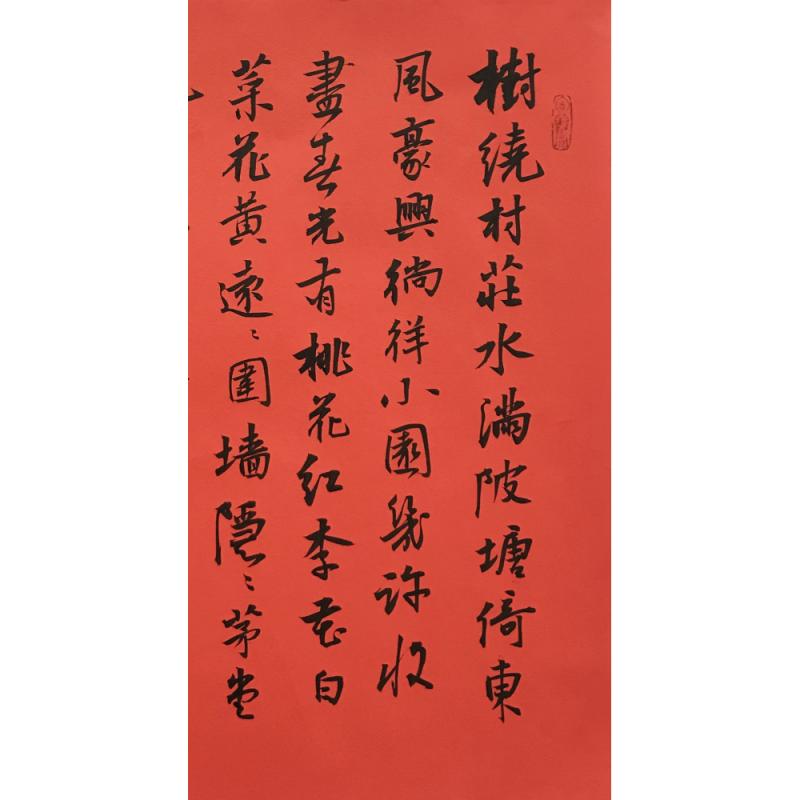 樹繞村莊水滿陂塘倚東
風豪興徜徉小園幾許收
盡春光有桃花紅李花白
菜花黃遠〻圍墻隱〻茅堂